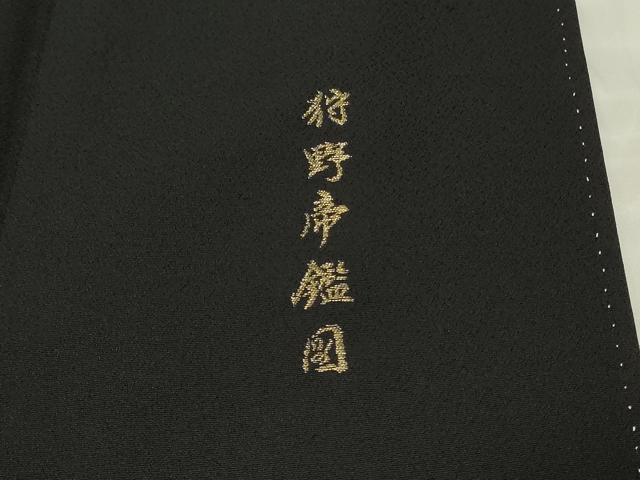 狩野帝鑑図